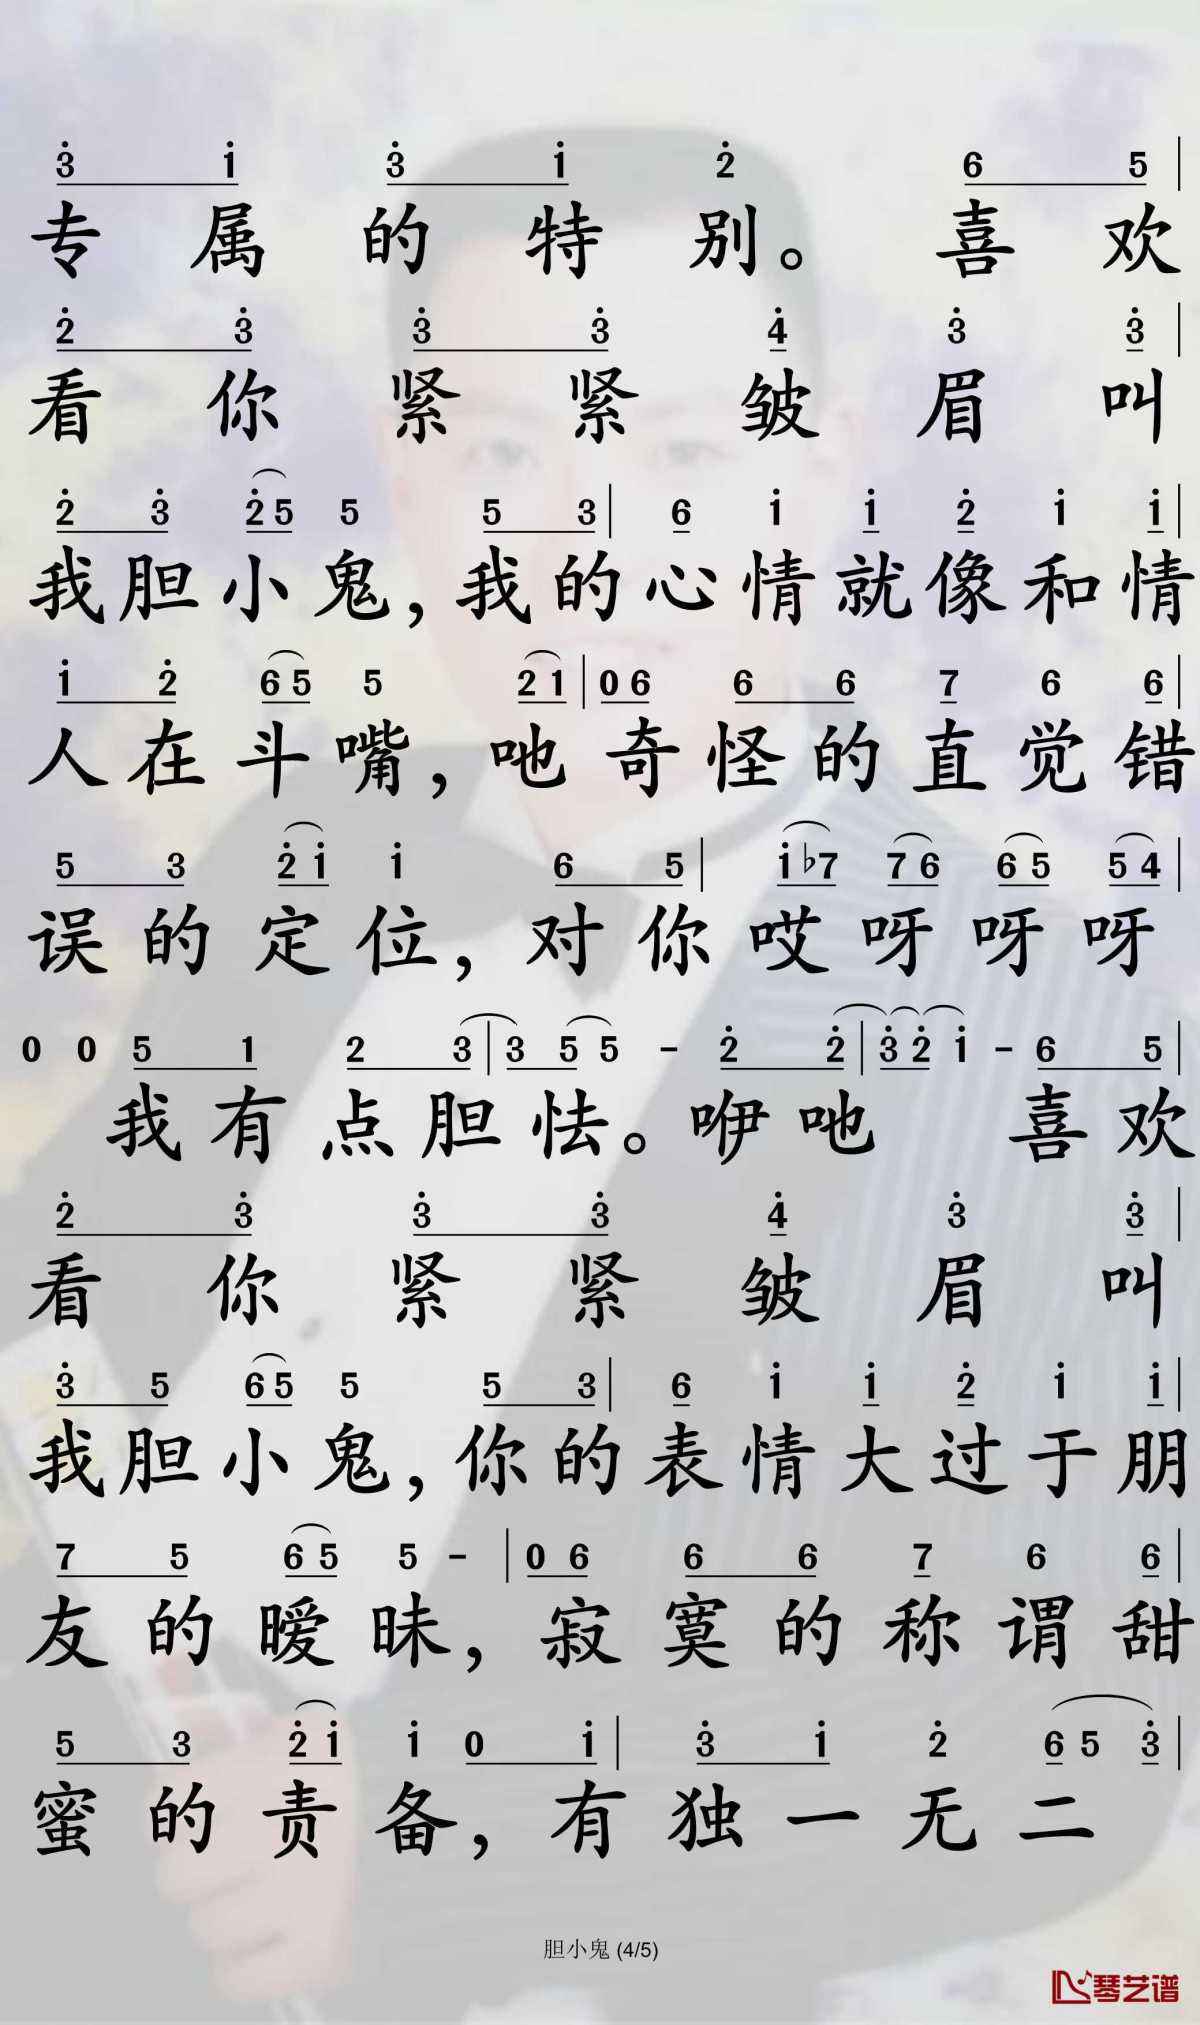 3̇ 1̇ 3̇ 1̇ 2̇ 6 5 |
专属的特别。喜欢
2̇ 3̇ 3̇ 3̇ 4̇ 3̇ 3̇ |
看你紧紧皱眉叫
2̇ 3̇ 2̇ 5 5 5 3 | 6 1̇ 1̇ 2̇ 1̇ 1̇ |
我胆小鬼,我的心情就像和情
1̇ 2̇ 6 5 5 2̇ 1̇ | 0 6 6 6 7 6 6 |
人在斗嘴,吔奇怪的直觉错
5 3 2̇ 1̇ 1̇ 6 5 | 1̇ ♭7 7 6 6 5 5 4 |
误的定位,对你哎呀呀呀
0 0 5 1 2 3 | 3 5 5 - 2̇ 2̇ | 3̇ 2̇ 1̇ - 6 5 |
我有点胆怯。咿吔 喜欢
2̇ 3̇ 3̇ 3̇ 4̇ 3̇ 3̇ |
看你紧紧皱眉叫
3̇ 5 6 5 5 5 3 | 6 1̇ 1̇ 2̇ 1̇ 1̇ |
我胆小鬼,你的表情大过于朋
7 5 6 5 5 - | 0 6 6 6 7 6 6 |
友的暧昧,寂寞的称谓甜
5 3 2̇ 1̇ 1̇ 0 1̇ | 3̇ 1̇ 2̇ 6 5 3̇ |
蜜的责备,有独一无二
胆小鬼 (4/5)
琴艺谱